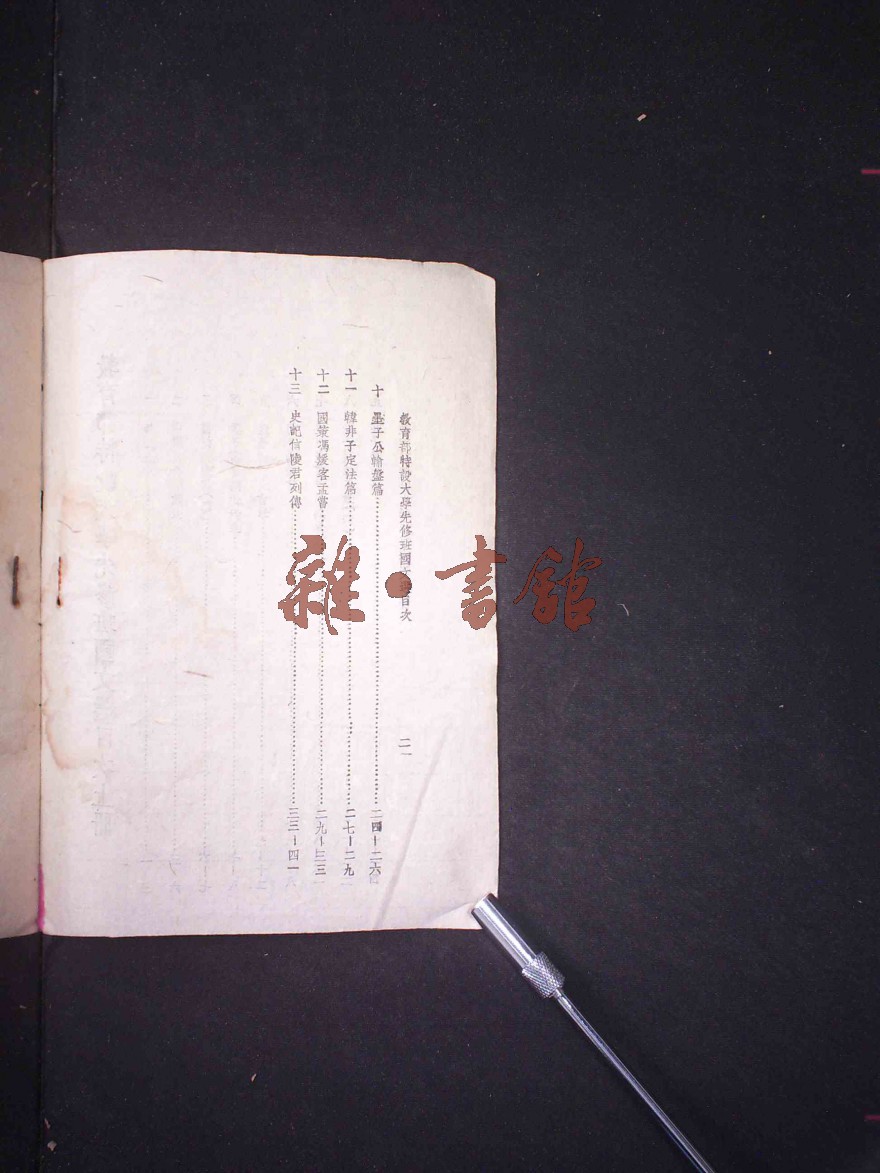 教育部特設大學先修班國文 目次
二
十 墨子公輸盤篇 二四—二六
十一 韓非子定法篇 二七—二九
十二 國策馮煖客孟嘗 二九—三三
十三 史記信陵君列傳 三三—四一
雜・書館